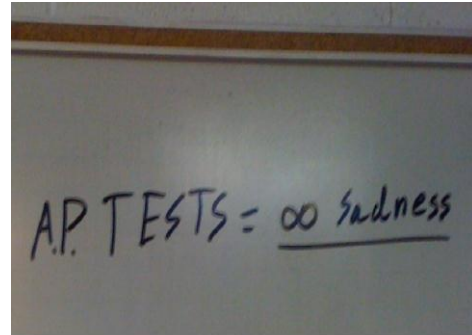 A.P. TESTS = ∞ Sadness